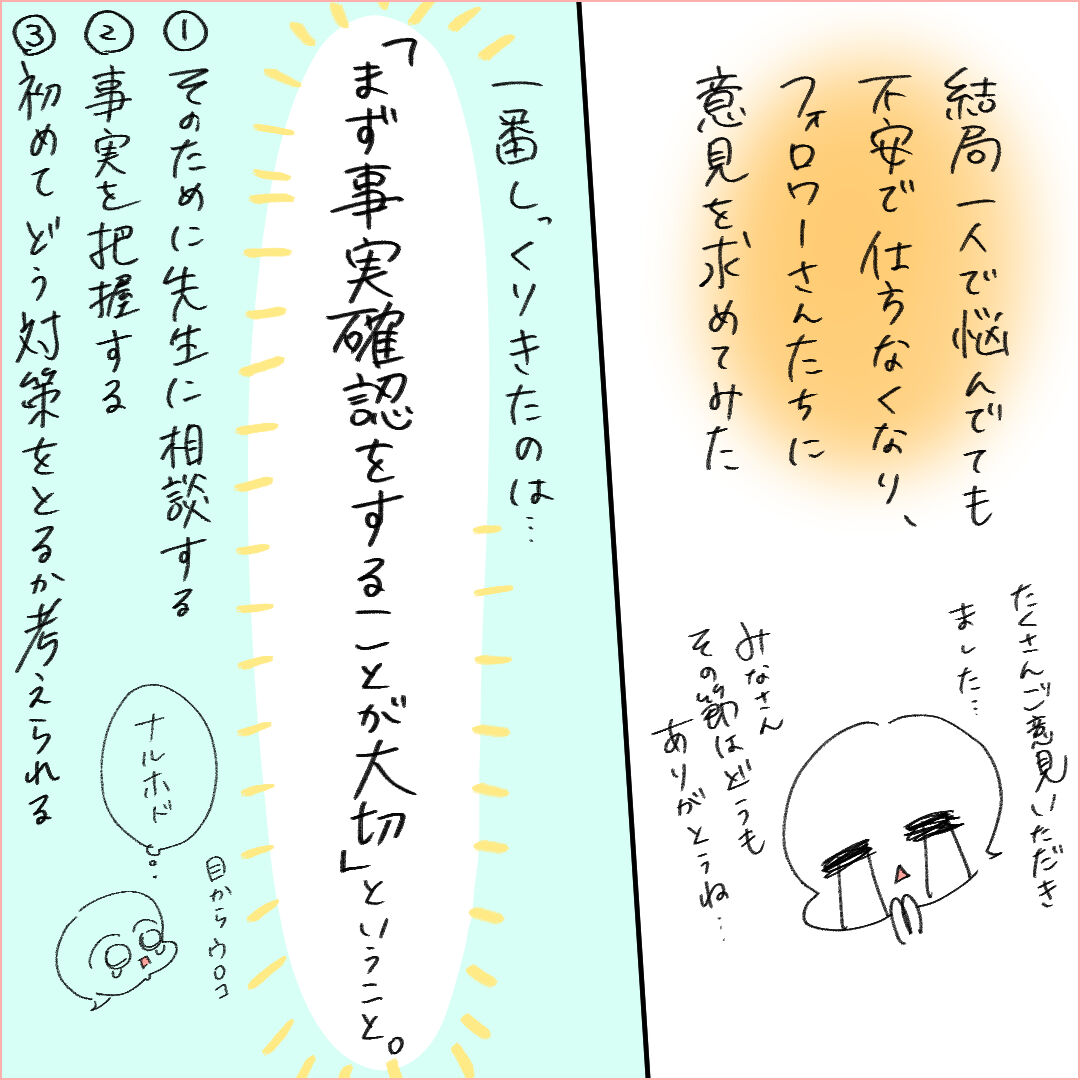 結局一人で悩んでても
不安で仕方なくなり、
フォロワーさんたちに
意見を求めてみた
たくさんご意見いただき
ました…
みなさん
その節はどうも
ありがとうね…
一番しっくりきたのは…
「まず事実確認をすることが大切」ということ。
①そのために先生に相談する
②事実を把握する
③初めてどう対策をとるか考えられる
ナルホド
目からウロコ